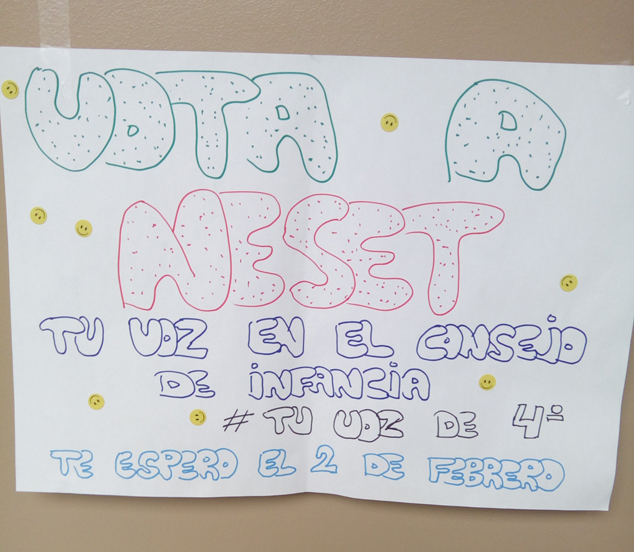 VOTA A
NESET
TU VOZ EN EL CONSEJO
DE INFANCIA
# TU VOZ DE 4º
TE ESPERO EL 2 DE FEBRERO